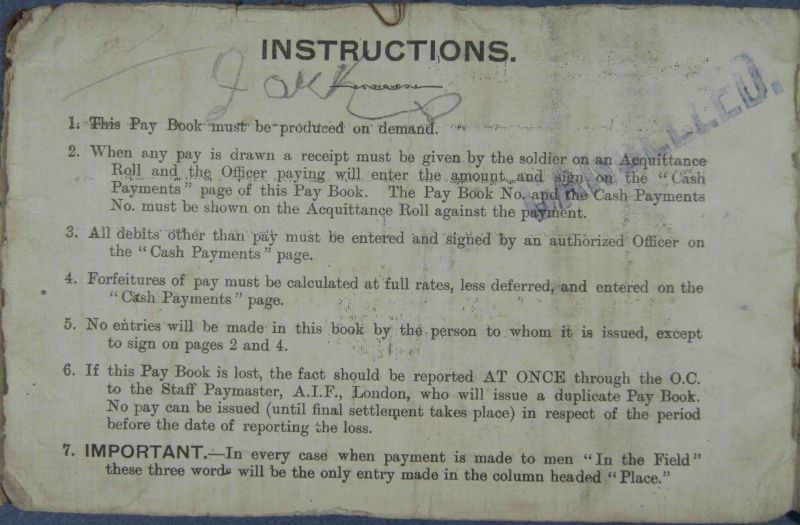 INSTRUCTIONS.
1. This Pay Book must be produced on demand.
2. When any pay is drawn a receipt must be given by the soldier on an Acquittance
Roll and the Officer paying will enter the amount and sign on the "Cash
Payments" page of this Pay Book. The Pay Book No. and the Cash Payments
No. must be shown on the Acquittance Roll against the payment.
3. All debits other than pay must be entered and signed by an authorized Officer on
the "Cash Payments" page.
4. Forfeitures of pay must be calculated at full rates, less deferred, and entered on the
"Cash Payments" page.
5. No entries will be made in this book by the person to whom it is issued, except
to sign on pages 2 and 4.
6. If this Pay Book is lost, the fact should be reported AT ONCE through the O.C.
to the Staff Paymaster, A.I.F., London, who will issue a duplicate Pay Book.
No pay can be issued (until final settlement takes place) in respect of the period
before the date of reporting the loss.
7. IMPORTANT.—In every case when payment is made to men "In the Field"
these three words will be the only entry made in the column headed "Place."
CANCELLED.